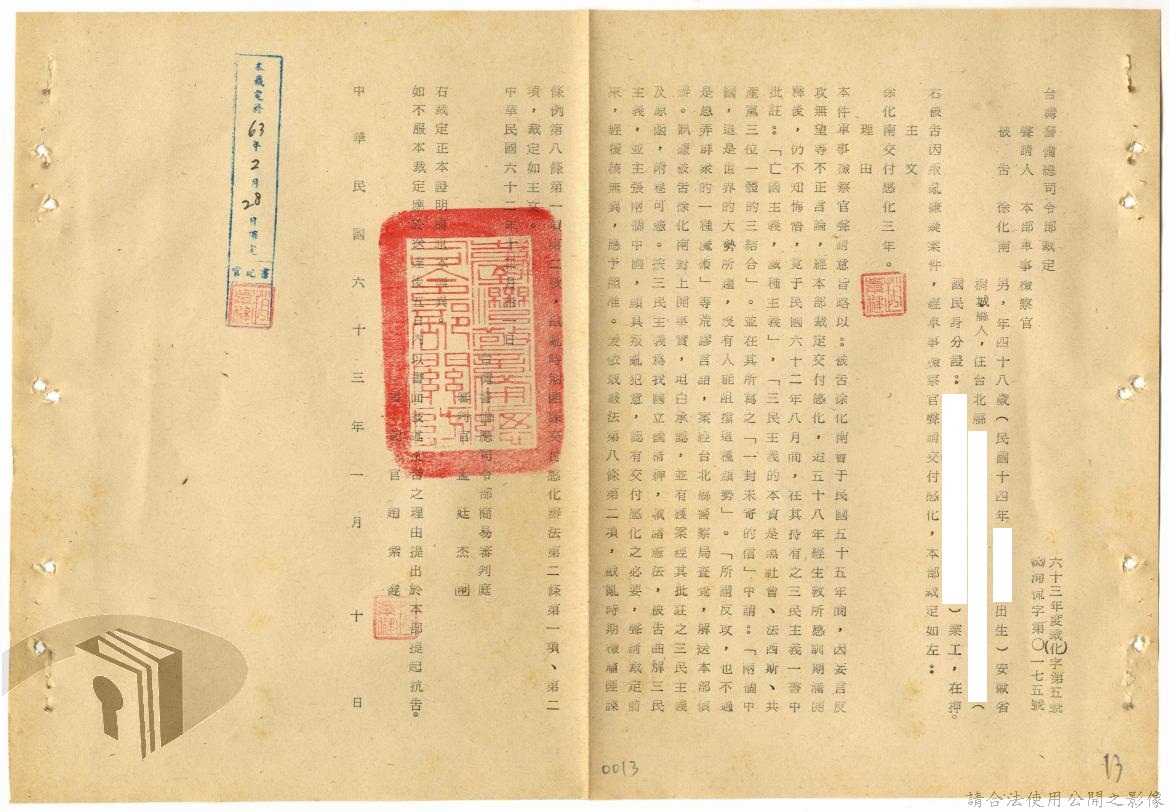 台灣警備總司令部裁定
六十三年度裁化字第五號
(63)諫淸侃字第〇一七五號
聲請人 本部軍事檢察官
被告 徐化南 男，年四十八歲（民國十四年
出生）安徽省
桐城縣人，住台北縣
國民身分證：
）業工，在押。
右被告因叛亂嫌疑案件，經軍事檢察官聲請交付感化，本部裁定如左：
主文
徐化南交付感化三年。
理由
本件軍事檢察官聲請意旨略以：被告徐化南曾于民國五十五年間，因妄言反
攻無望等不正言論，經本部裁定交付感化，迨五十八年經生教所感訓期滿開
釋後，仍不知悔悟，竟于民國六十二年八月間，在其持有之三民主義一書中
批註：「亡國主義，滅種主義」，「三民主義的本質是無社會、法西斯、共
產黨三位一體的三結合」。並在其所寫之「一封未寄的信」中謂：「兩個中
國，這是世界的大勢所趨，沒有人能阻擋這種趨勢」。「所謂反攻，也不過
是愚弄群衆的一種魔術」等荒謬言語，案經台北縣警察局查覺，解送本部偵
辦。訊據被告徐化南對上開事實，坦白承認，並有獲案經其批註之三民主義
及原函，附卷可憑。按三民主義爲我國立國精神，載諸憲法，被告曲解三民
主義，並主張兩個中國，顯具叛亂犯意，認有交付感化之必要，聲請裁定前
來，經覆核無異，應予照准。爰依戒嚴法第八條第二項，戡亂時期檢肅匪諜
條例第八條第一項第二款，戡亂時期匪諜交付感化辦法第二條第一項、第二
項，裁定如主文。
中華民國六十三年一月
日
台灣警備總司令部簡易審判庭
審判官 孟廷杰
右裁定正本證明與原本無異。
如不服本裁定應於送達後五日內以書面敍述不服之理由提出於本部提起抗告。
書記官 趙紫健
中華民國六十三年一月十日
本裁定於63年2月28日確定
書記官
0013
13
請合法使用公開之影像